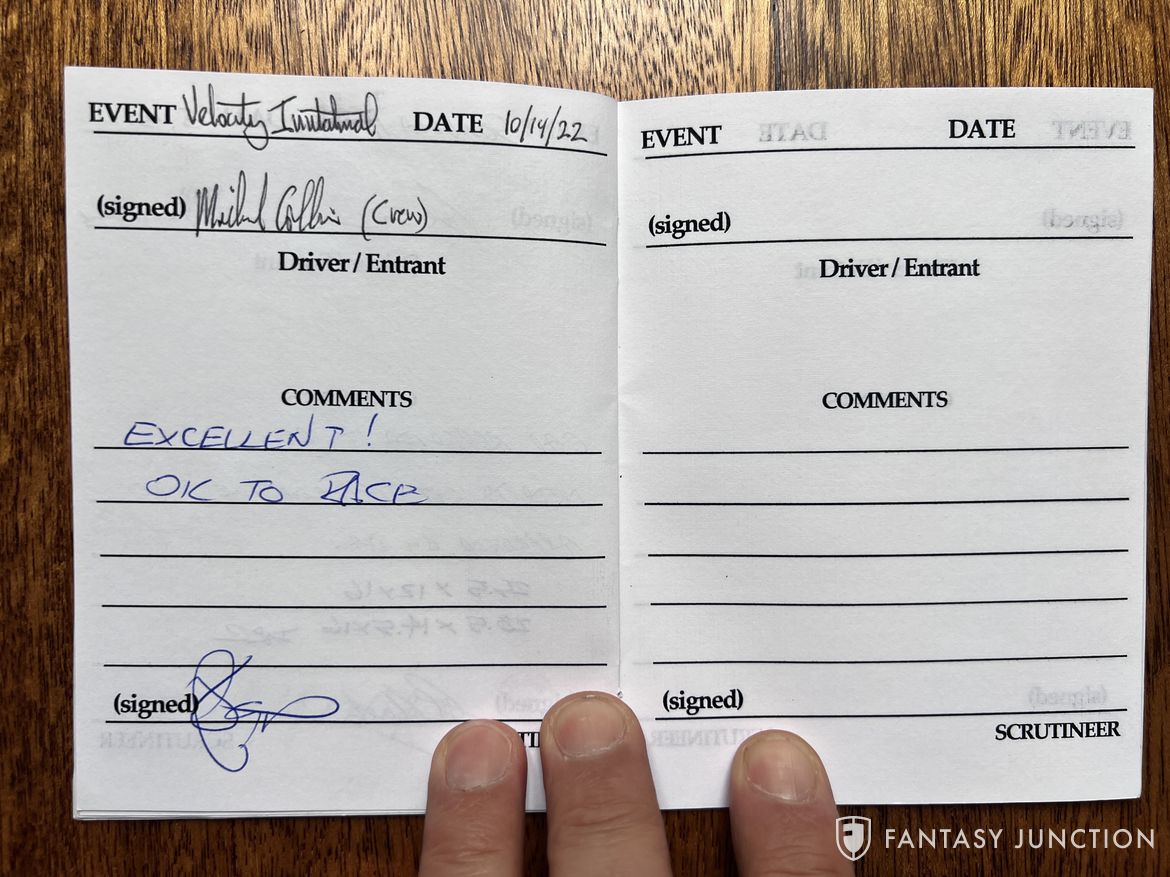 EVENT Velocity Invitational DATE 10/14/22
(signed) Michael (Crew)
Driver / Entrant
COMMENTS
EXCELLENT!
OK TO RACE
(signed)
EVENT DATE
(signed)
Driver / Entrant
COMMENTS
(signed)
SCRUTINEER
FANTASY JUNCTION